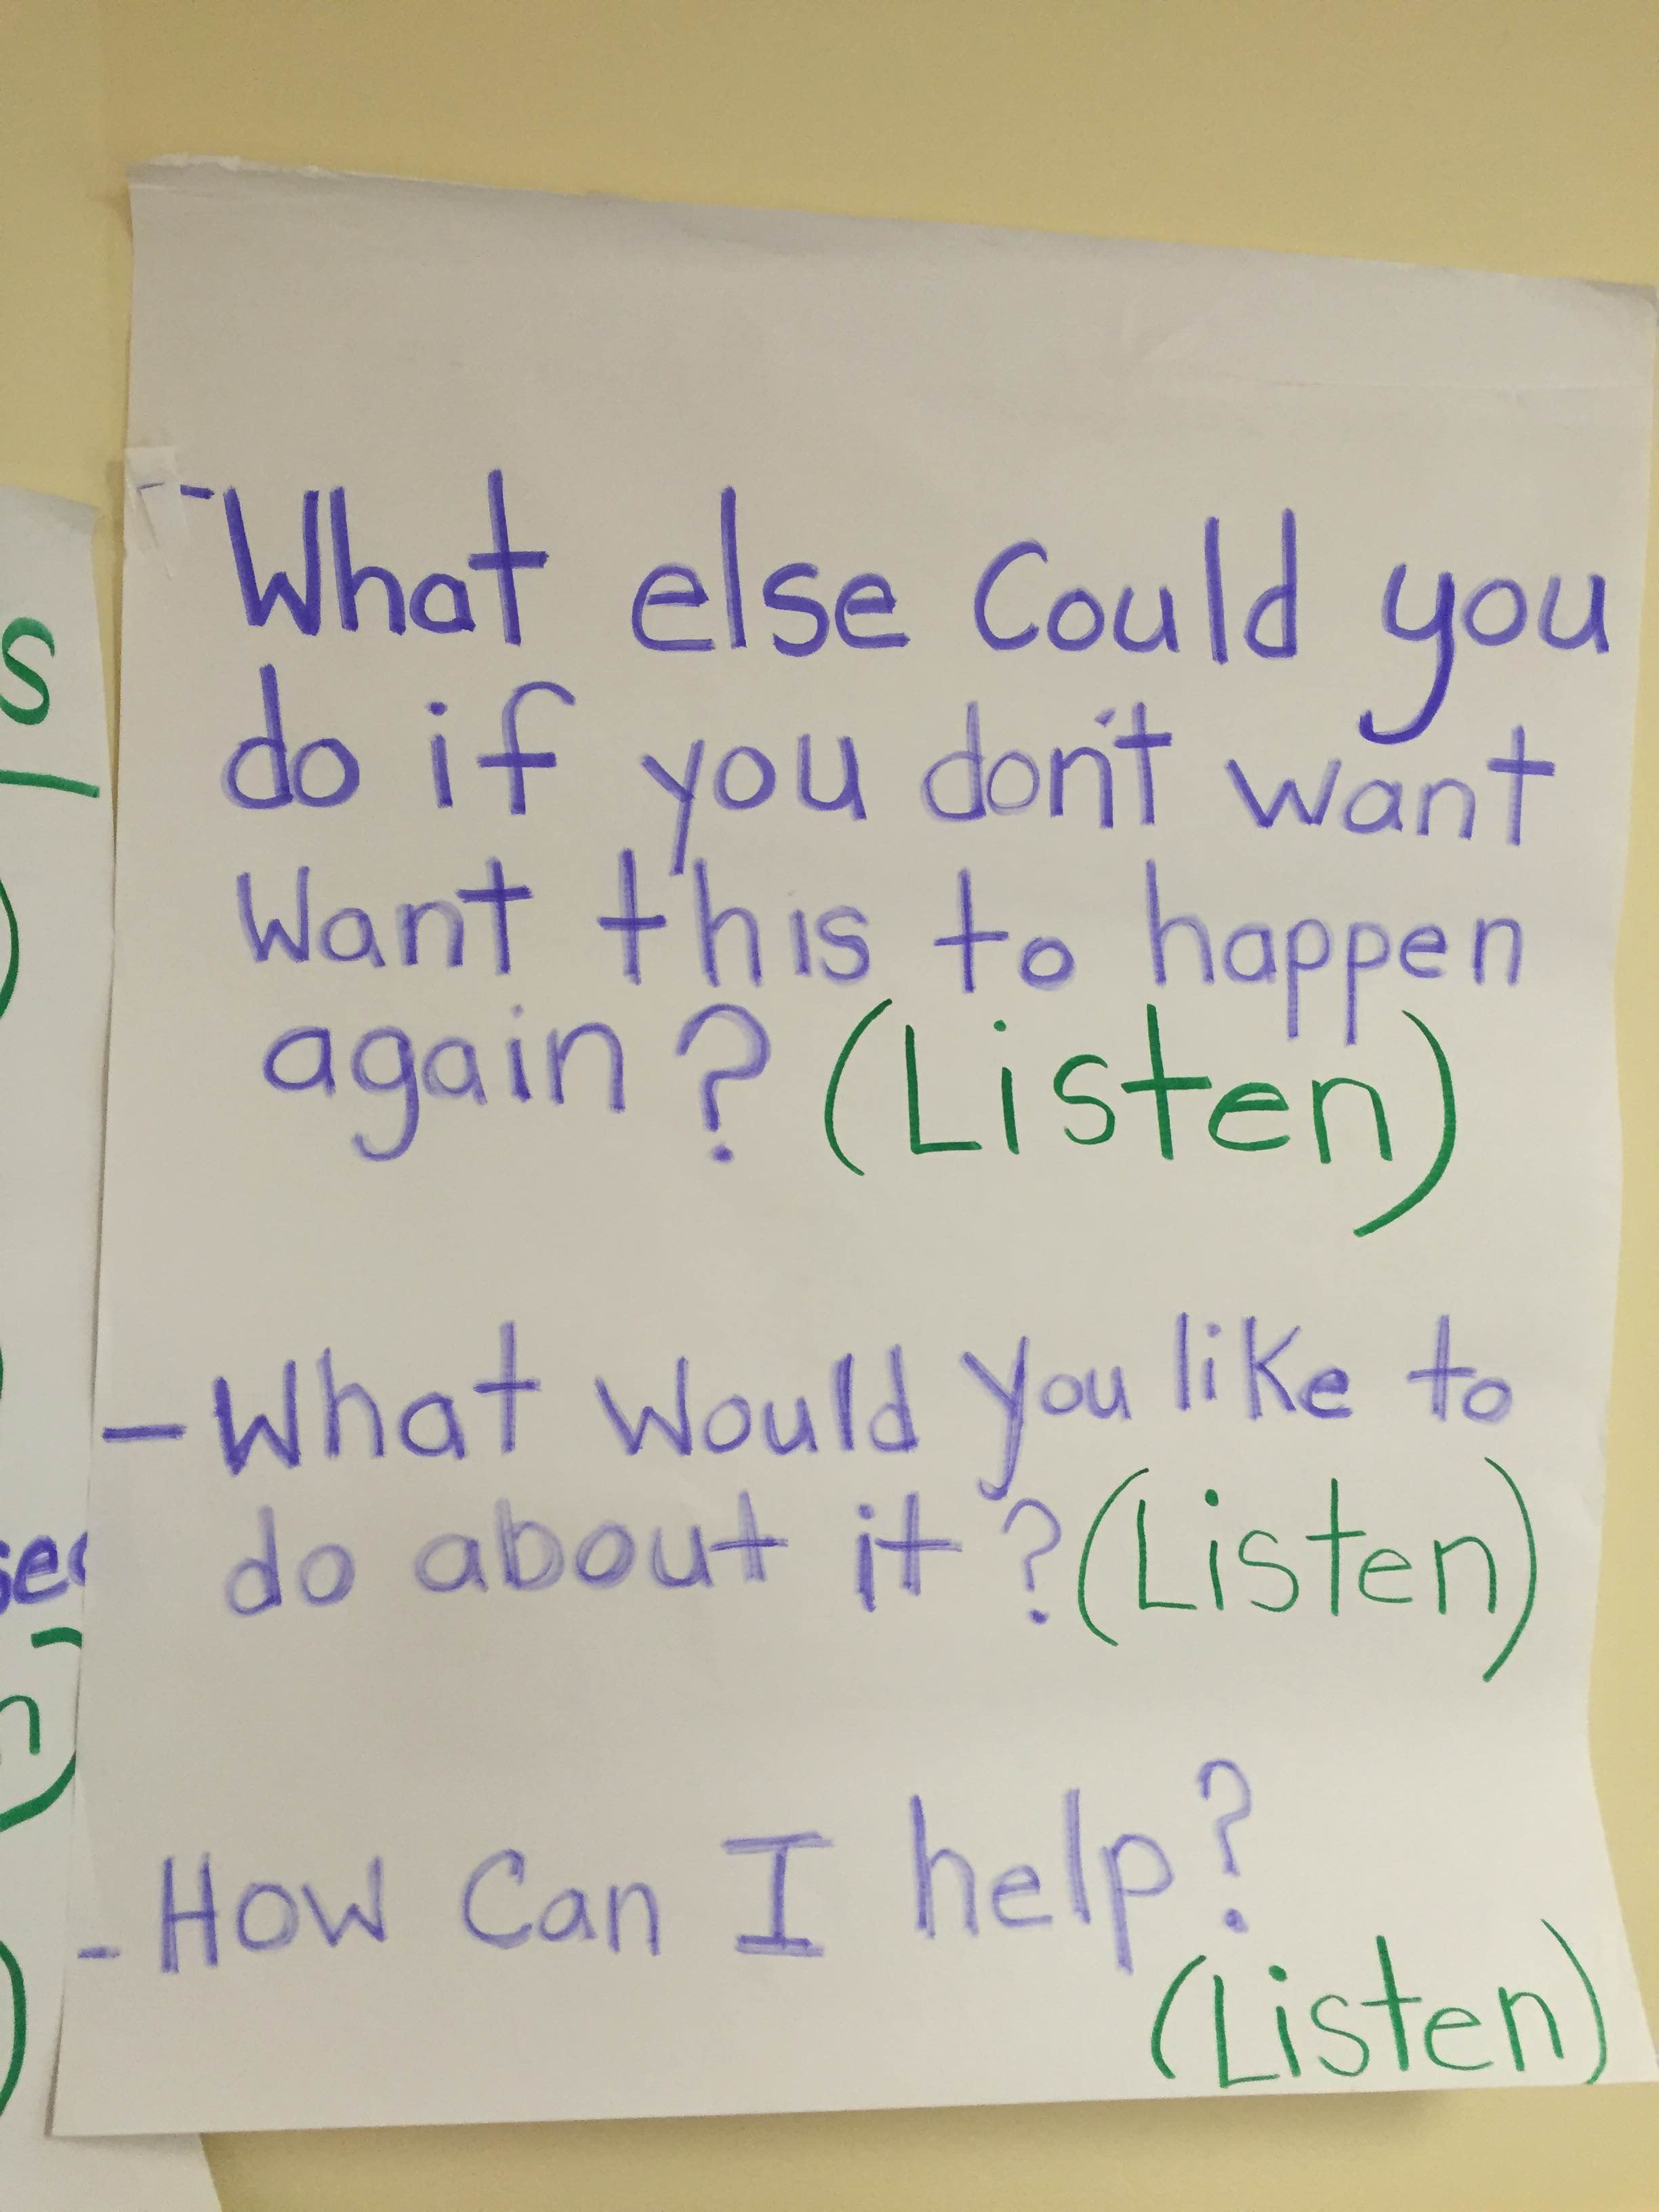 - What else Could you
do if you don't want
Want this to happen
again? (Listen)
- What would you like to
do about it? (Listen)
- How Can I help?
(Listen)
s